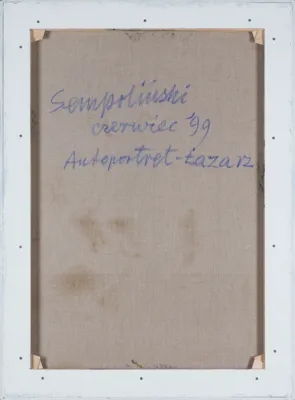 Sempoliński
czerwiec '99
Autoportret-Łazarz